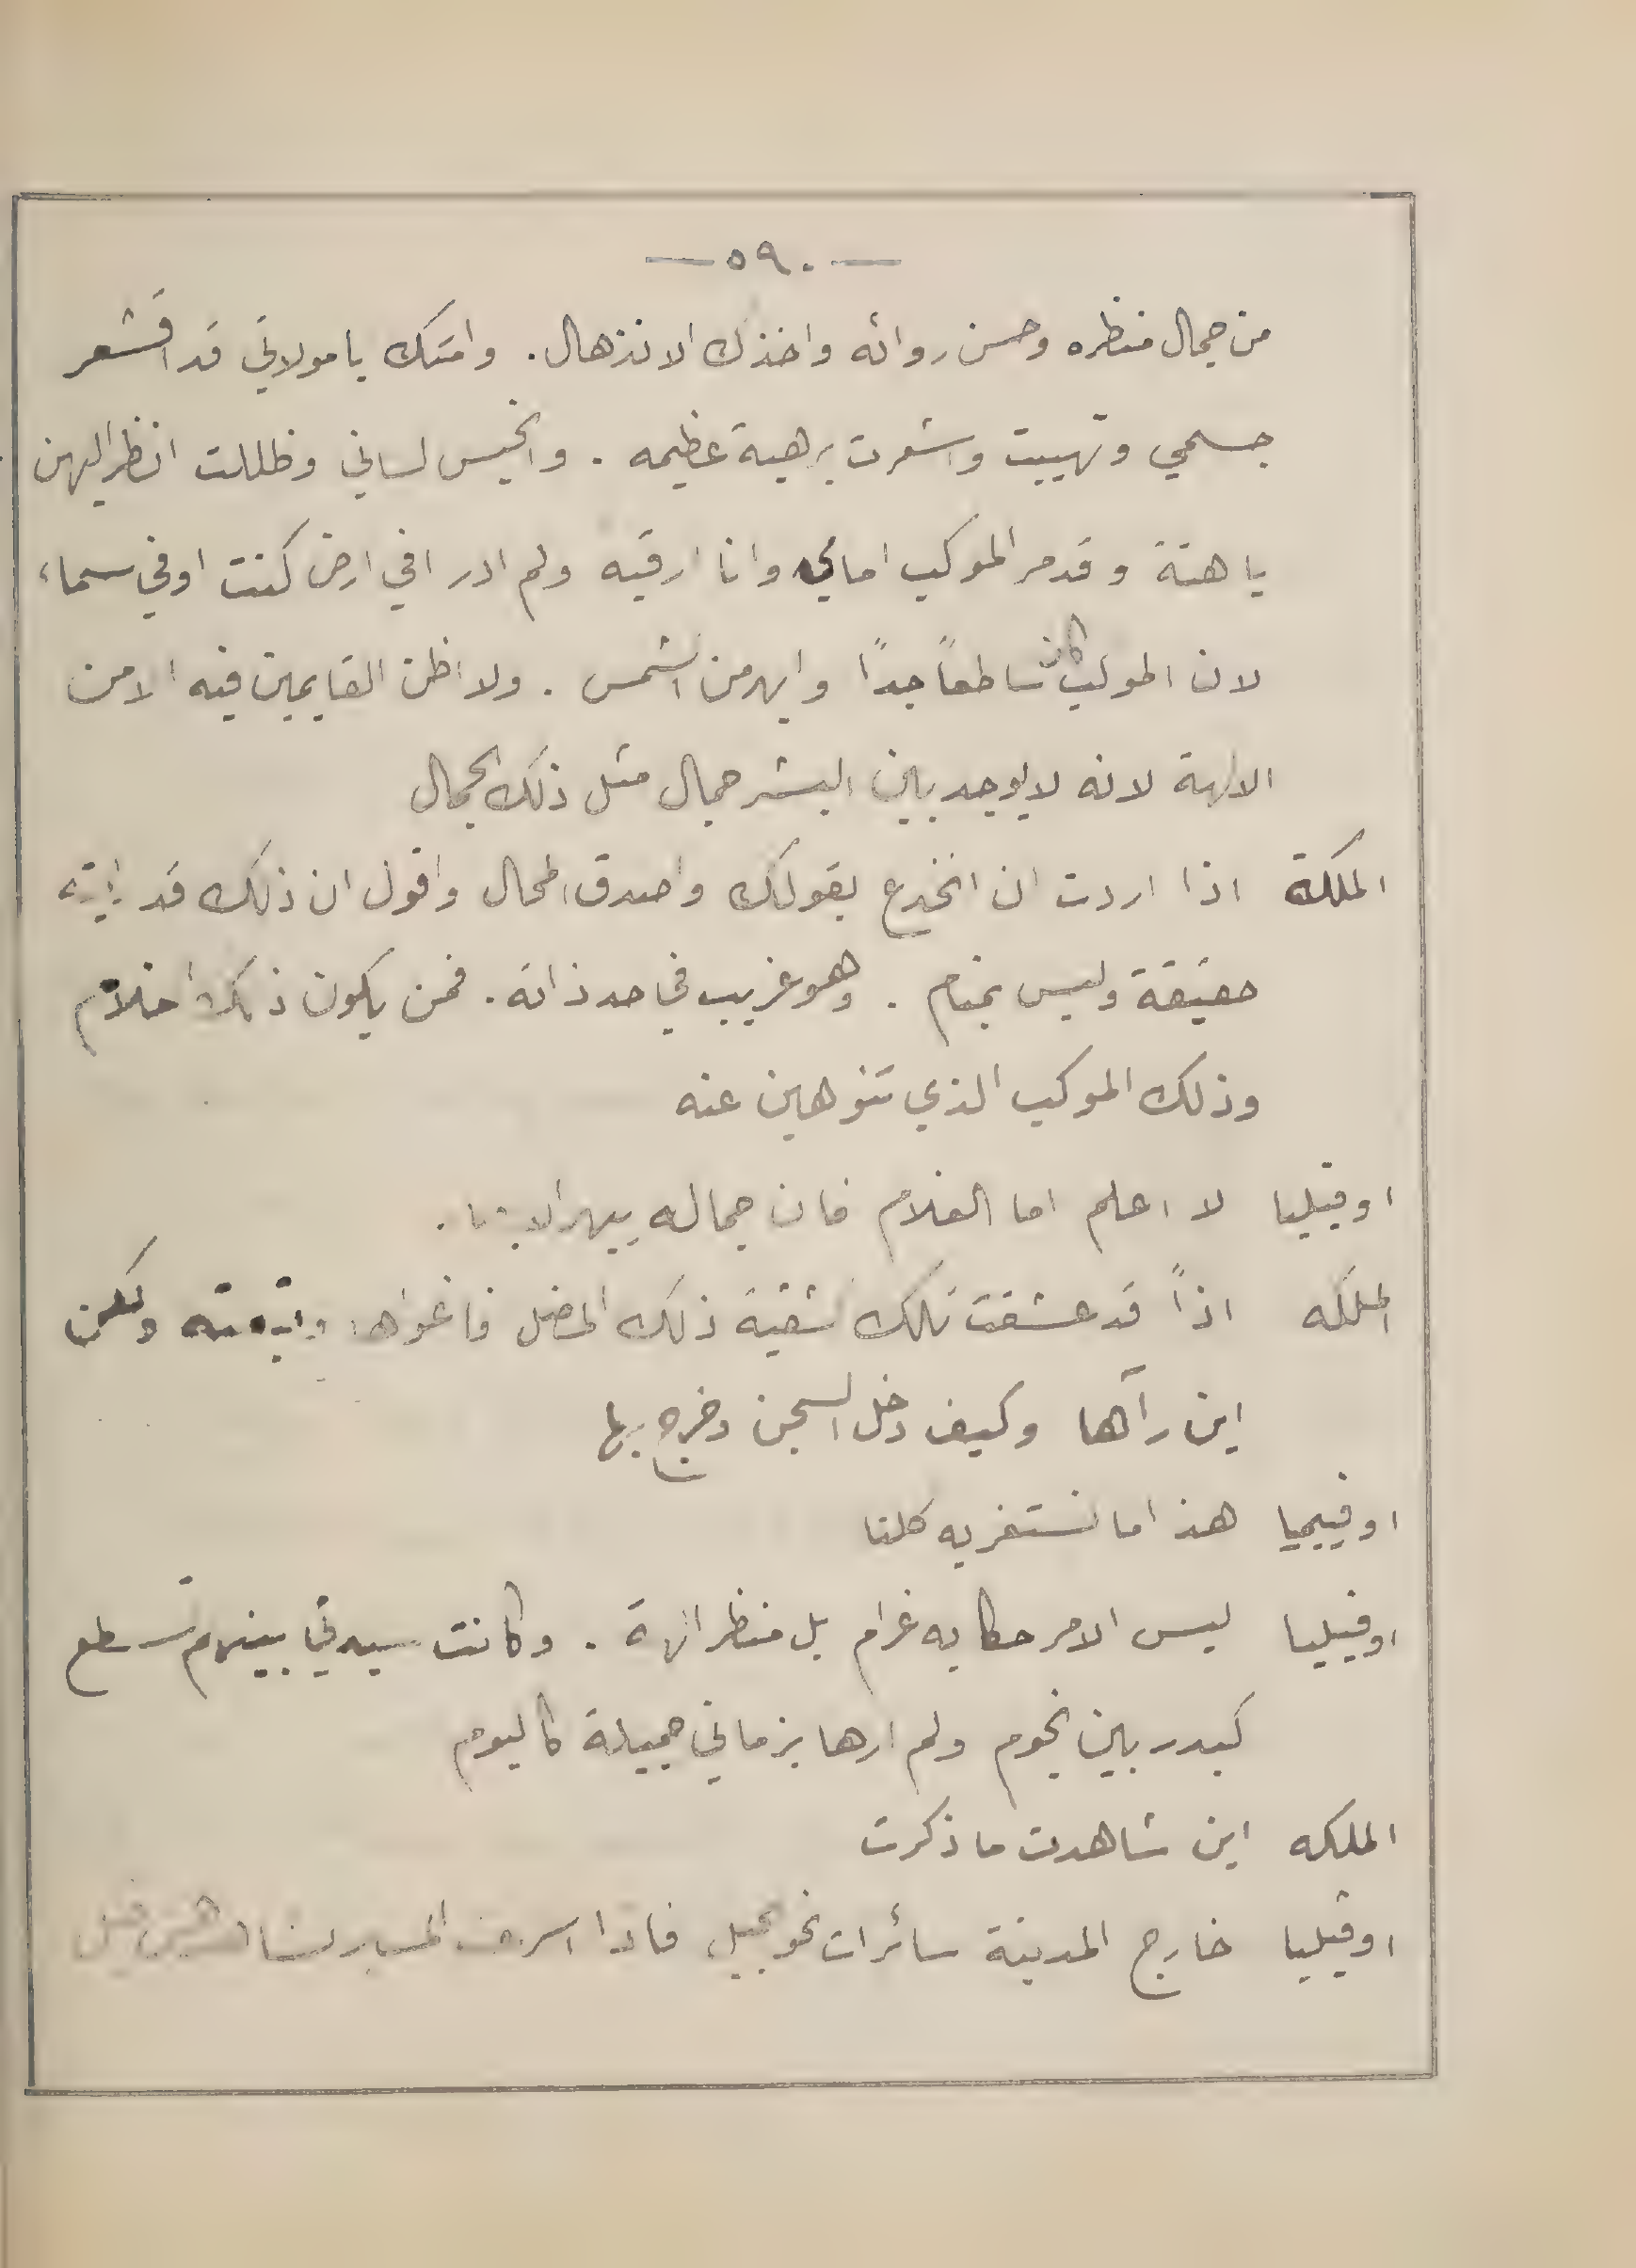 — ٥٩٠ —
من جمال منظره وحسن روائه واخذك الانذهال. وامتك يا مولاتي قد اقشعر
جسمي وتهيبت واشعرت برهبة عظيمه. وانحبس لساني وظللت انظر اليهن
باهتة وقد مر الموكب امامي وانا ارقبه ولم ادر افي ارض كنت او في سماء
لان الموكب كان ساطعاً جداً وابهر من الشمس. ولا اظن القايمين فيه الا من
الالهة لانه لا يوجد بين البشر جمال مثل ذلك الجمال
الملكة اذا اردت ان انخدع بقولك واصدق المحال واقول ان ذلك قد رايته
حقيقة وليس بمنام. وهو غريب في حد ذاته. فمن يكون ذلك
وذلك الموكب الذي تنوهين عنه
اوفيليا لا اعلم اما الغلام فان جماله يبهر
الملكه اذاً قد عشقت تلك الشقية ذلك المضل فاغواها
اين رآها وكيف دخل السجن وخرج بها
اوفيميا هذا ما نستغربه كلنا
اوفيليا ليس الامر حكايه غرام بل منظر الهة. وكانت سيدتي بينهم تسطع
كبدر بين نجوم ولم ارها بزماني جميلة كاليوم
الملكه اين شاهدت ما ذكرت
اوفيليا خارج المدينة سائرات نحو الجبل فاذا